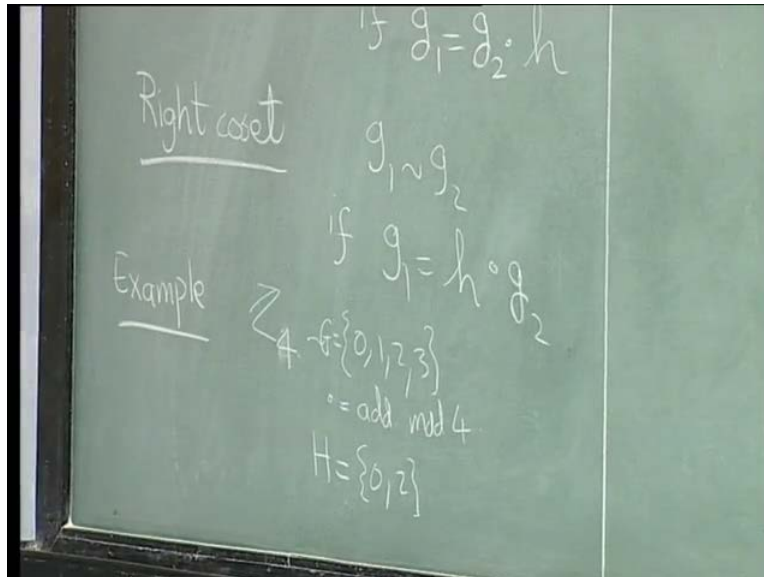 if g₁ = g₂ · h
Right coset
g₁ ~ g₂
if g₁ = h · g₂
Example
Z₄ ~ G = {0, 1, 2, 3}
· = add mod 4
H = {0, 2}